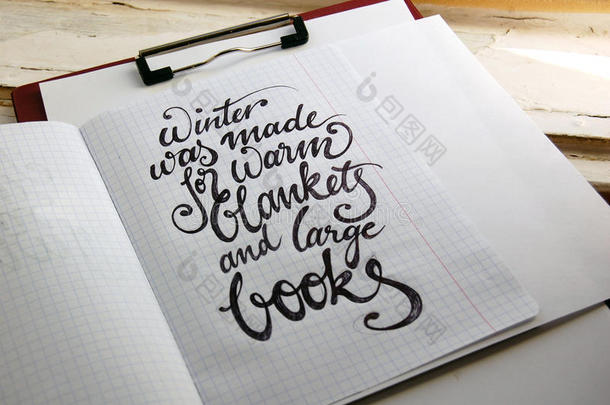 Winter
was made
for warm
blankets
and large
books
包图网
包图网
包图网
包图网